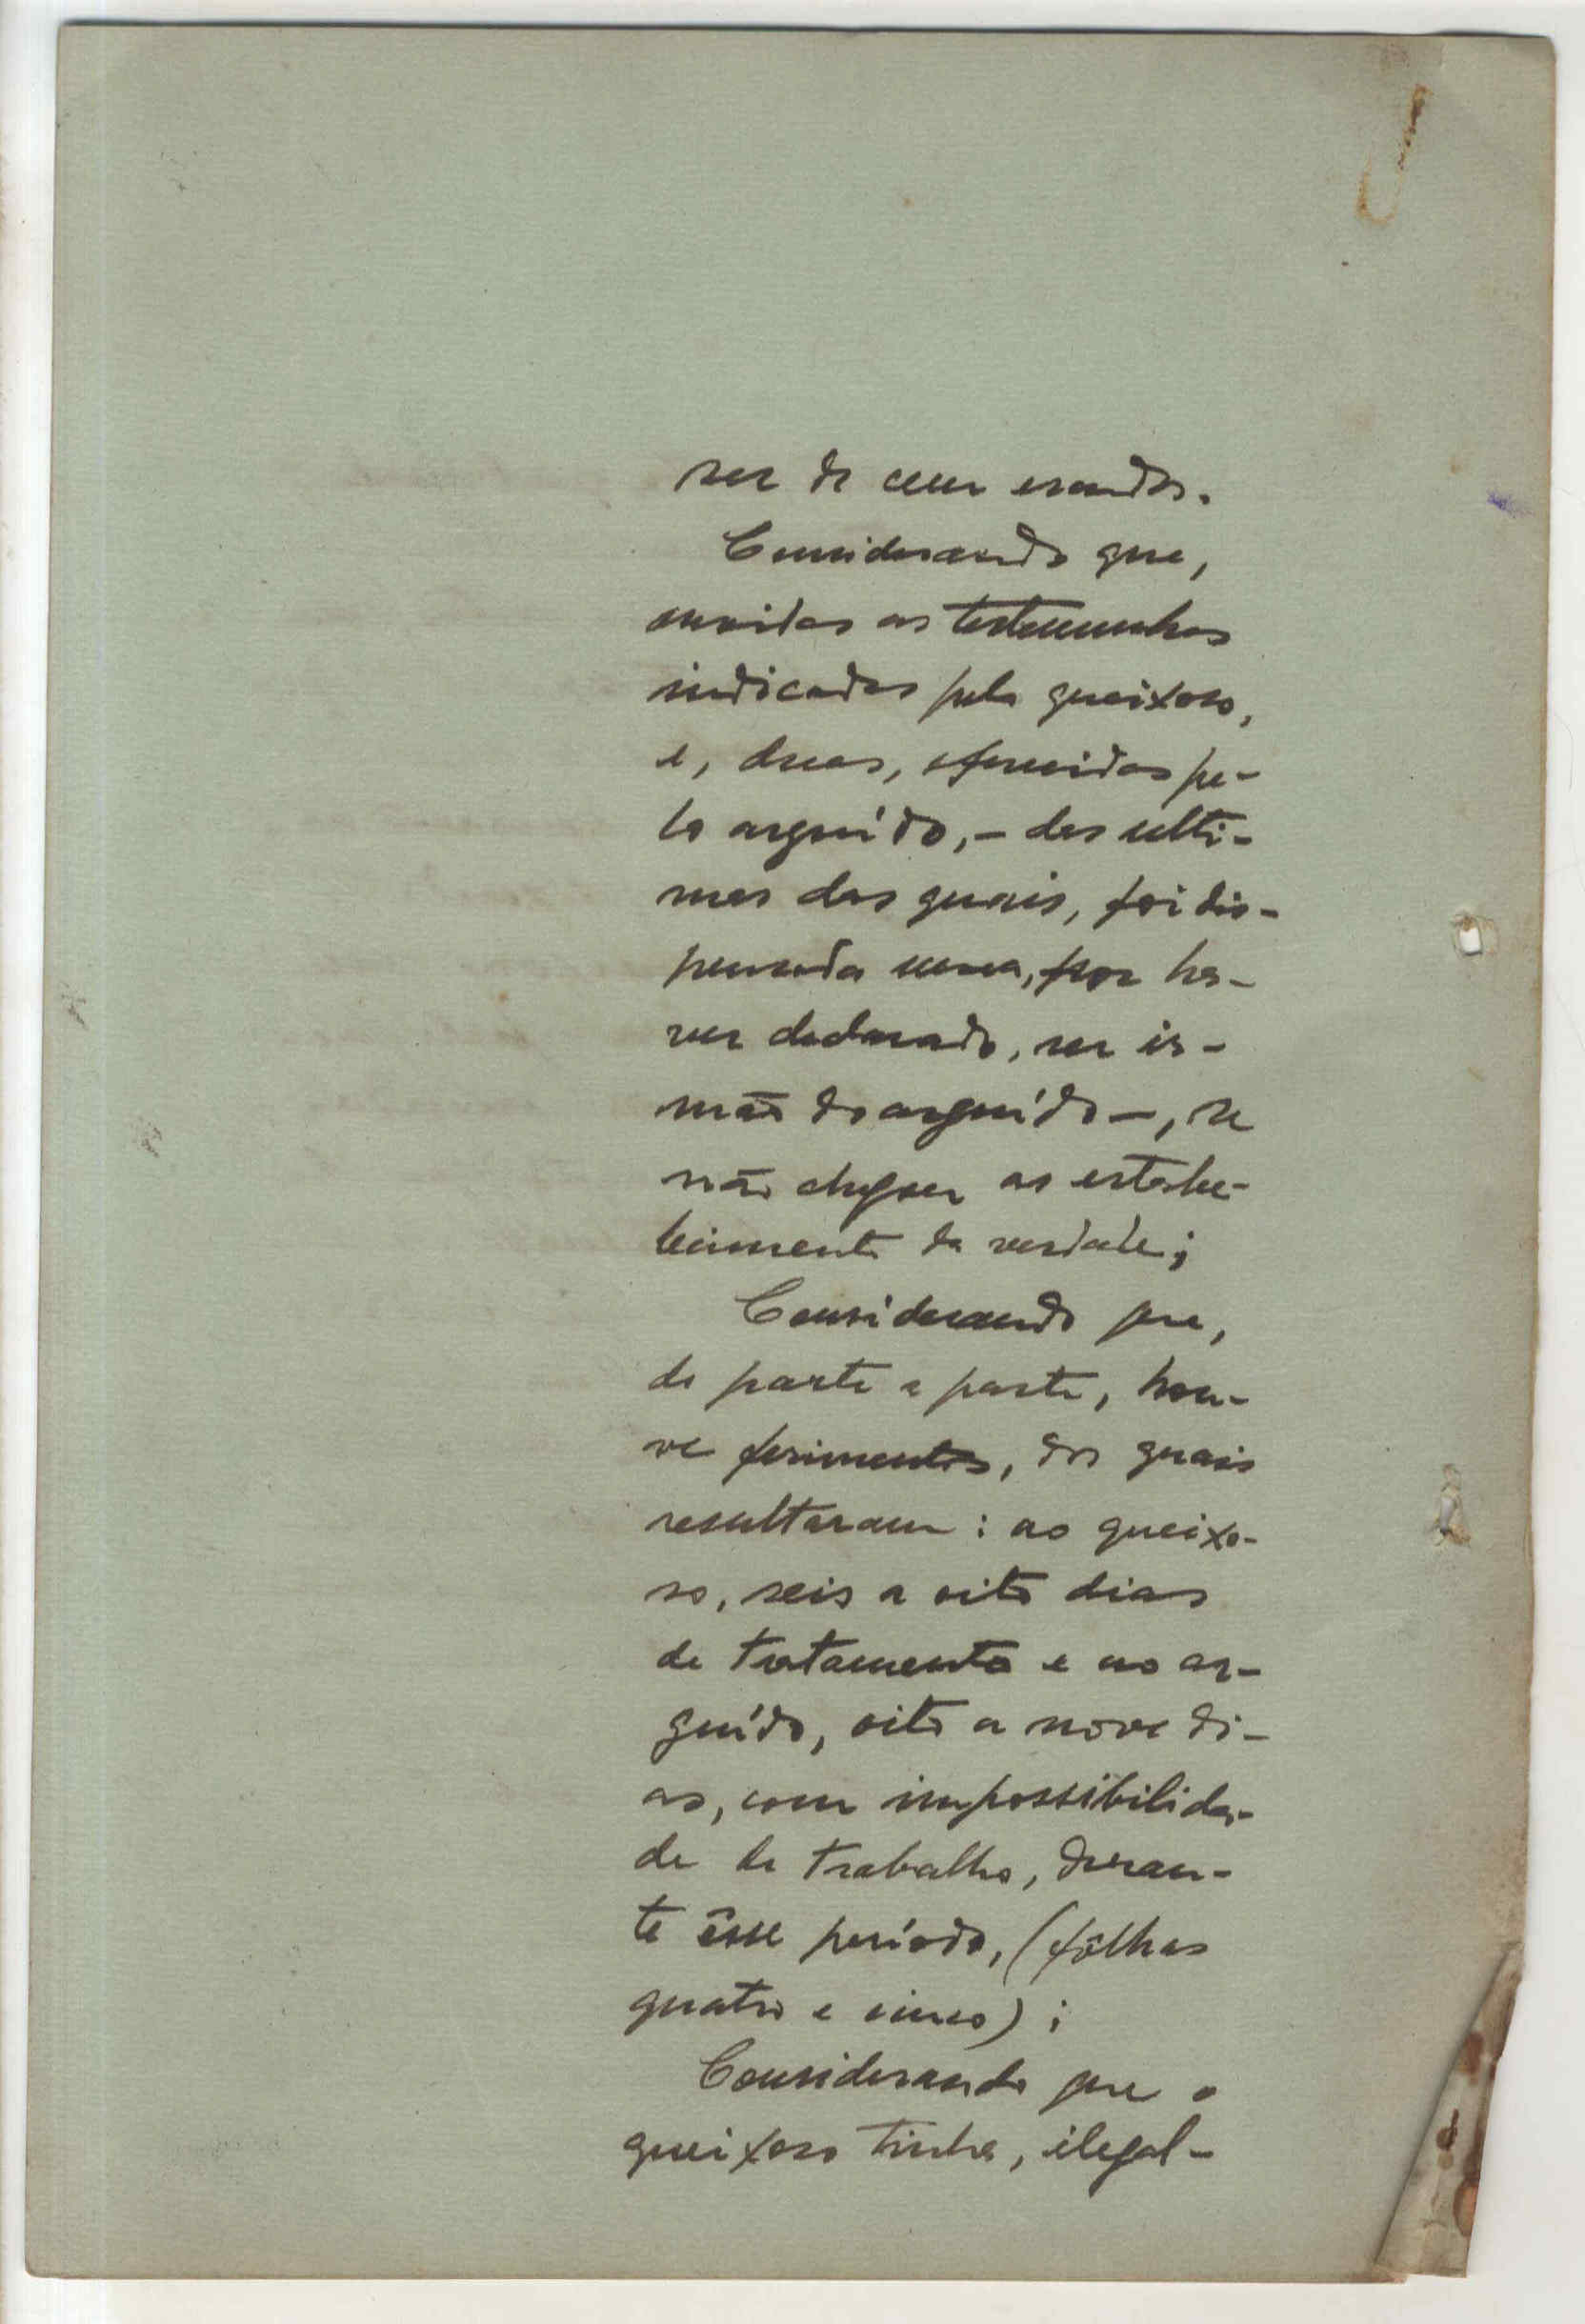 ser de cem escudos.
Considerando que,
ouvidas as testemunhas
indicadas pelo queixoso,
e, duas, oferecidas pe-
lo arguído,- das ulti-
mas das quais, foi dis-
pensada uma, por ha-
ver declarado, ser ir-
mão do arguído-, se
não chegou ao estabe-
lecimento da verdade;
Considerando que,
de parte a parte, hou-
ve ferimentos, dos quais
resultaram: ao queixo-
so, seis a oito dias
de tratamento e ao ar-
guído, oito a nove di-
as, com impossibilida-
de de trabalho, duran-
te êsse período, (fôlhas
quatro e cinco);
Considerando que o
queixoso tinha, ilegal-